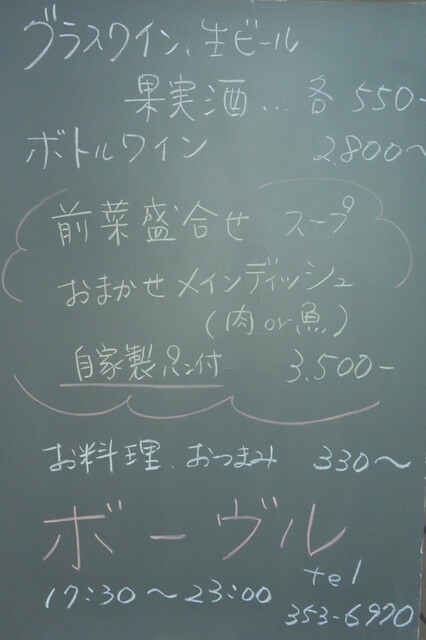 グラスワイン、生ビール
果実酒…各 550-
ボトルワイン 2.800〜
前菜盛合せ・スープ
おまかせメインディッシュ
(肉or魚)
自家製パン付 3.500-
お料理、おつまみ 330〜
ボーヴル
17:30〜23:00 tel
353-6970